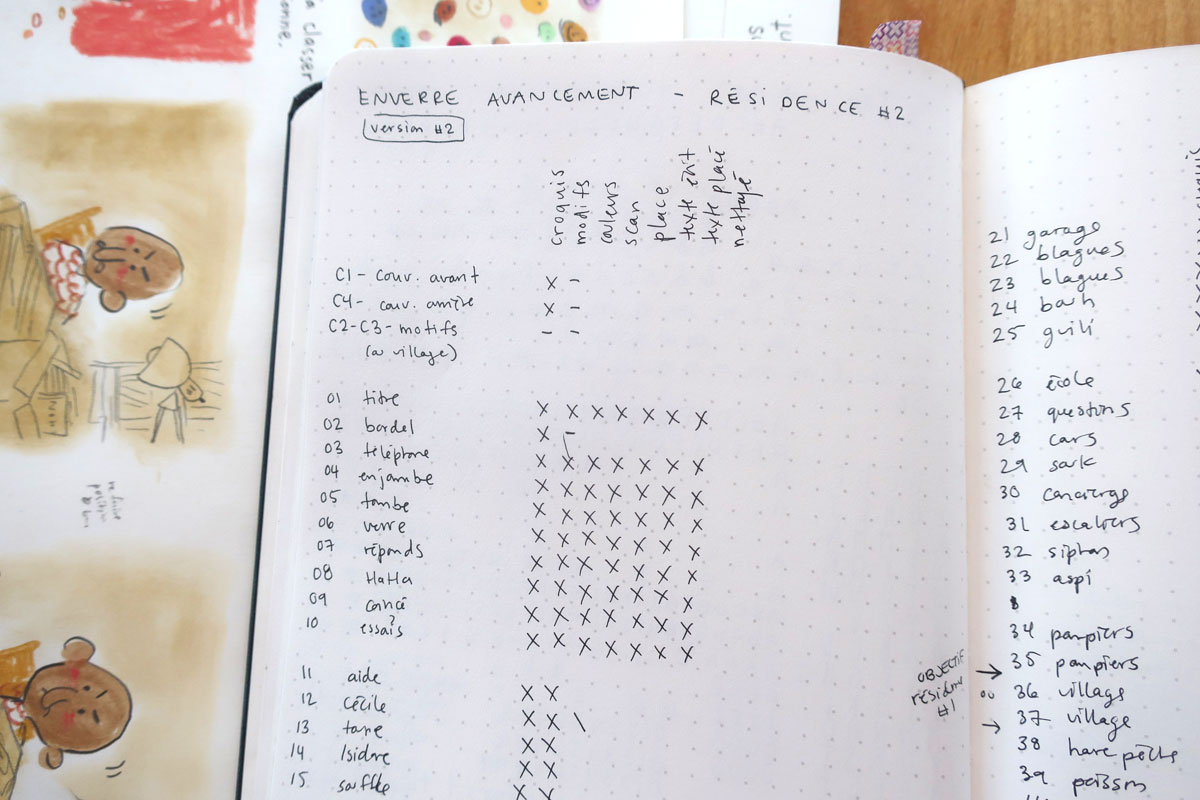 à closer
onne.
ENVERRE AVANCEMENT - RÉSIDENCE #2
version #2
croquis
modifs
couleurs
scan
place
texte écrit
texte placé
nettoyé
C1 - couv. avant x -
C4 - couv. arrière x -
C2-C3 - motifs - -
(ou village)
01 titre x x x x x x x
02 bordel x -
03 téléphone x x x x x x x
04 enjambe x x x x x x x
05 tombe x x x x x x x
06 verre x x x x x x x
07 réponds x x x x x x x
08 HaHa x x x x x x x
09 coincé x x x x x x x
10 essais x x x x x x x
11 aide x x
12 Cécile x x \
13 x x
14 Isidore x x
15 x x
21 garage
22 blagues
23 blagues
24 bach
25 guili
26 école
27 questions
28 cars
29
30 concierge
31 escaliers
32 siphon
33 aspi
34 pompiers
OBJECTIF résidence #1
→ 35 pompiers
ou 36 village
→ 37 village
38 pêche
39 poisson